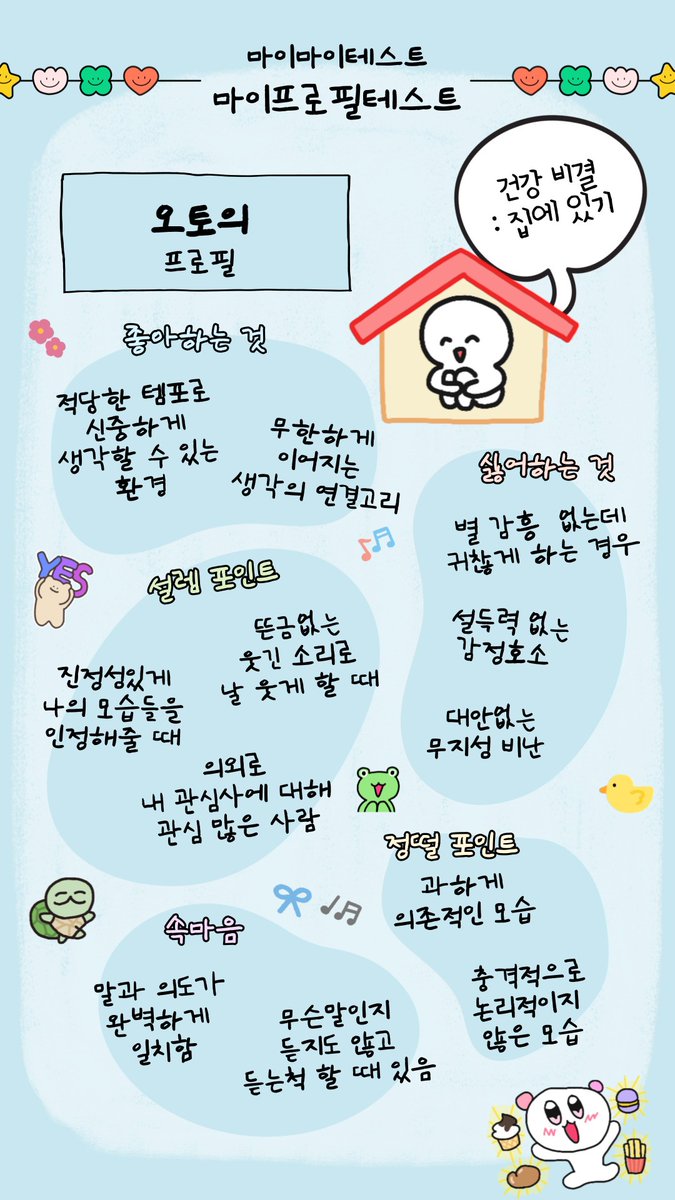 마이마이테스트
마이프로필테스트
오토의
프로필
건강 비결
: 집에 있기
좋아하는 것
적당한 템포로
신중하게
생각할 수 있는
환경
무한하게
이어지는
생각의 연결고리
싫어하는 것
별 감흥 없는데
귀찮게 하는 경우
설득력 없는
감정호소
대안없는
무지성 비난
YES
설렘 포인트
진정성있게
나의 모습들을
인정해줄 때
뜬금없는
웃긴 소리로
날 웃게 할 때
의외로
내 관심사에 대해
관심 많은 사람
정떨 포인트
과하게
의존적인 모습
충격적으로
논리적이지
않은 모습
속마음
말과 의도가
완벽하게
일치함
무슨말인지
듣지도 않고
듣는척 할 때 있음